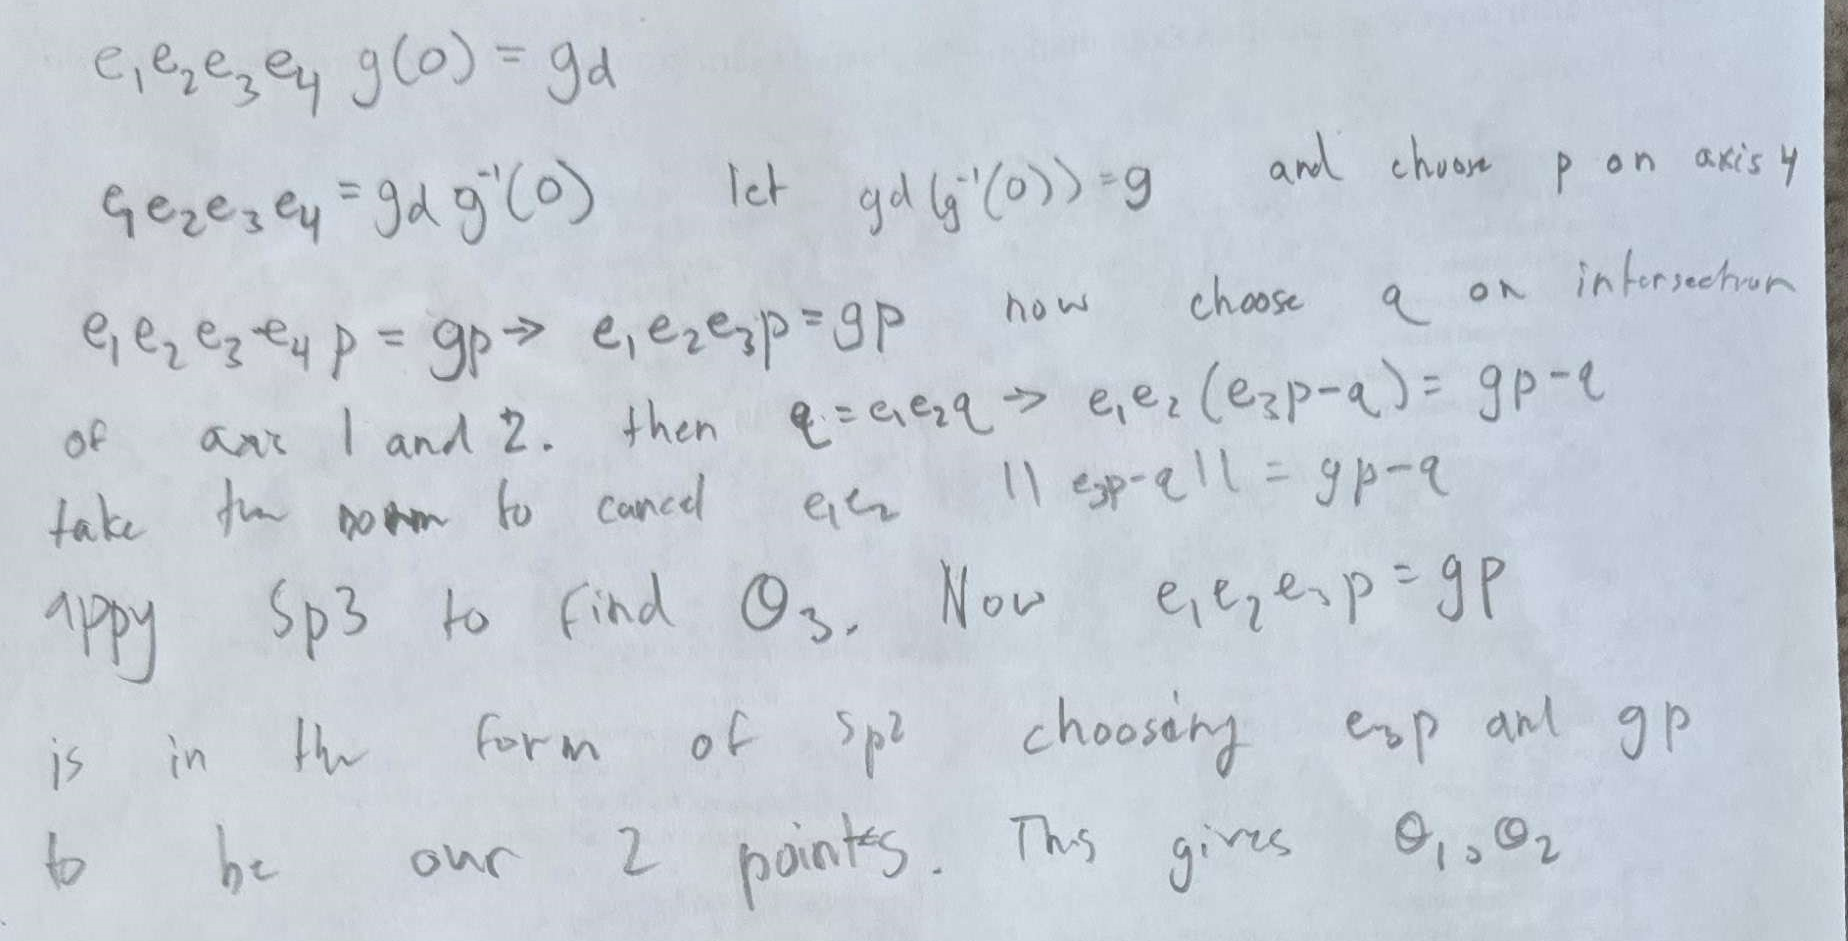 e₁e₂e₃e₄ g(0) = gd
e₁e₂e₃e₄ = gd g⁻¹(0) let gd(g⁻¹(0)) = g and choose p on axis 4
e₁e₂e₃e₄p = gp → e₁e₂e₃p = gp now choose q on intersection
of axis 1 and 2. then q = e₁e₂q → e₁e₂(e₃p-q) = gp-q
take the norm to cancel e₁e₂ ||e₃p-q|| = gp-q
appy Sp3 to find θ₃. Now e₁e₂e₃p = gp
is in the form of Sp2 choosing e₃p and gp
to be our 2 points. This gives θ₁,θ₂